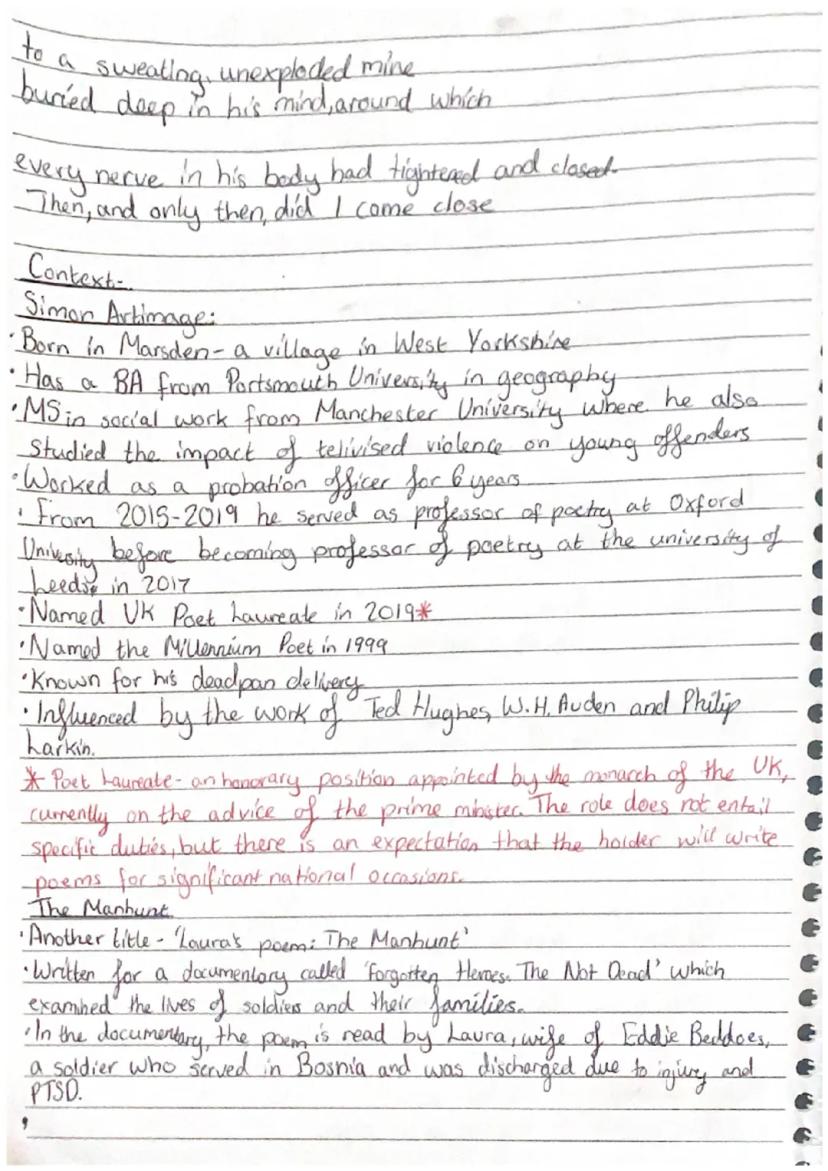 to a sweating, unexploded mine
buried deep in his mind, around which
every nerve in his body had tightened and closed.
Then, and only then, did I come close
Context-
Simon Artimage:
·Born in Marsden- a village in West Yorkshire
·Has a BA from Portsmouth University in geography
·MS in social work from Manchester University where he also
studied the impact of telivised violence on young offenders
·Worked as a probation officer for 6 years
·From 2015-2019 he served as professor of poetry at Oxford
University before becoming professor of poetry at the university of
Leeds in 2017
·Named UK Poet Laureate in 2019*
·Named the Millennium Poet in 1999
·Known for his deadpan delivery
·Influenced by the work of Ted Hughes, W.H. Auden and Philip
Larkin.
* Poet Laureate- an honorary position appointed by the monarch of the UK,
currently on the advice of the prime minster. The role does not entail
specific duties, but there is an expectation that the holder will write
poems for significant national occasions.
The Manhunt
·Another title- 'Laura's poem: The Manhunt'
·Written for a documentary called 'Forgotten Heroes. The Not Dead' which
examined the lives of soldiers and their families.
·In the documentary, the poem is read by Laura, wife of Eddie Beddoes,
a soldier who served in Bosnia and was discharged due to injury and
PTSD.